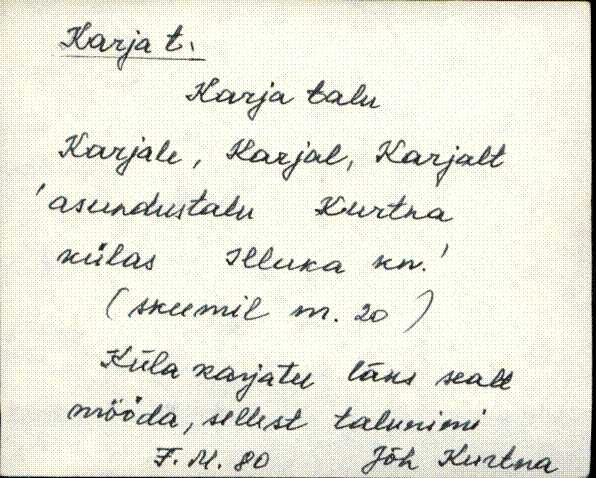 Karja t.
Karja talu
Karjale, Karjal, Karjalt
'asundustalu Kurtna
külas Illuka kn.'
(skeemil nr. 20)
Küla karjatee läks sealt
mööda, sellest talunimi
F. M. 80 Jõh Kurtna